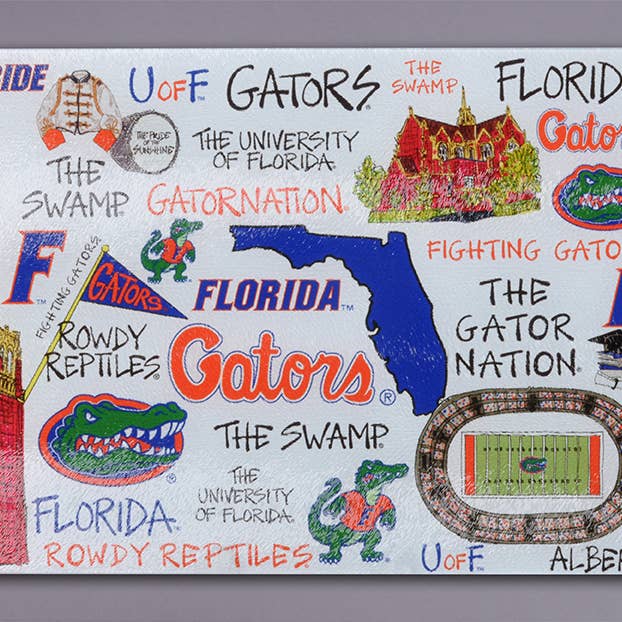 RIDE
U OF F™
GATORS®
THE
SWAMP
FLORID
THE PRIDE
OF THE
SUNSHINE
THE UNIVERSITY
OF FLORIDA®
Gators
THE
SWAMP®
GATORNATION®
FIGHTING GATO
F™
FIGHTING GATORS
GATORS
FLORIDA™
THE
GATOR
NATION®
ROWDY
REPTILES®
Gators®
THE SWAMP®
THE
UNIVERSITY
OF FLORIDA®
FLORIDA®
ROWDY REPTILES
U OF F™
ALBER